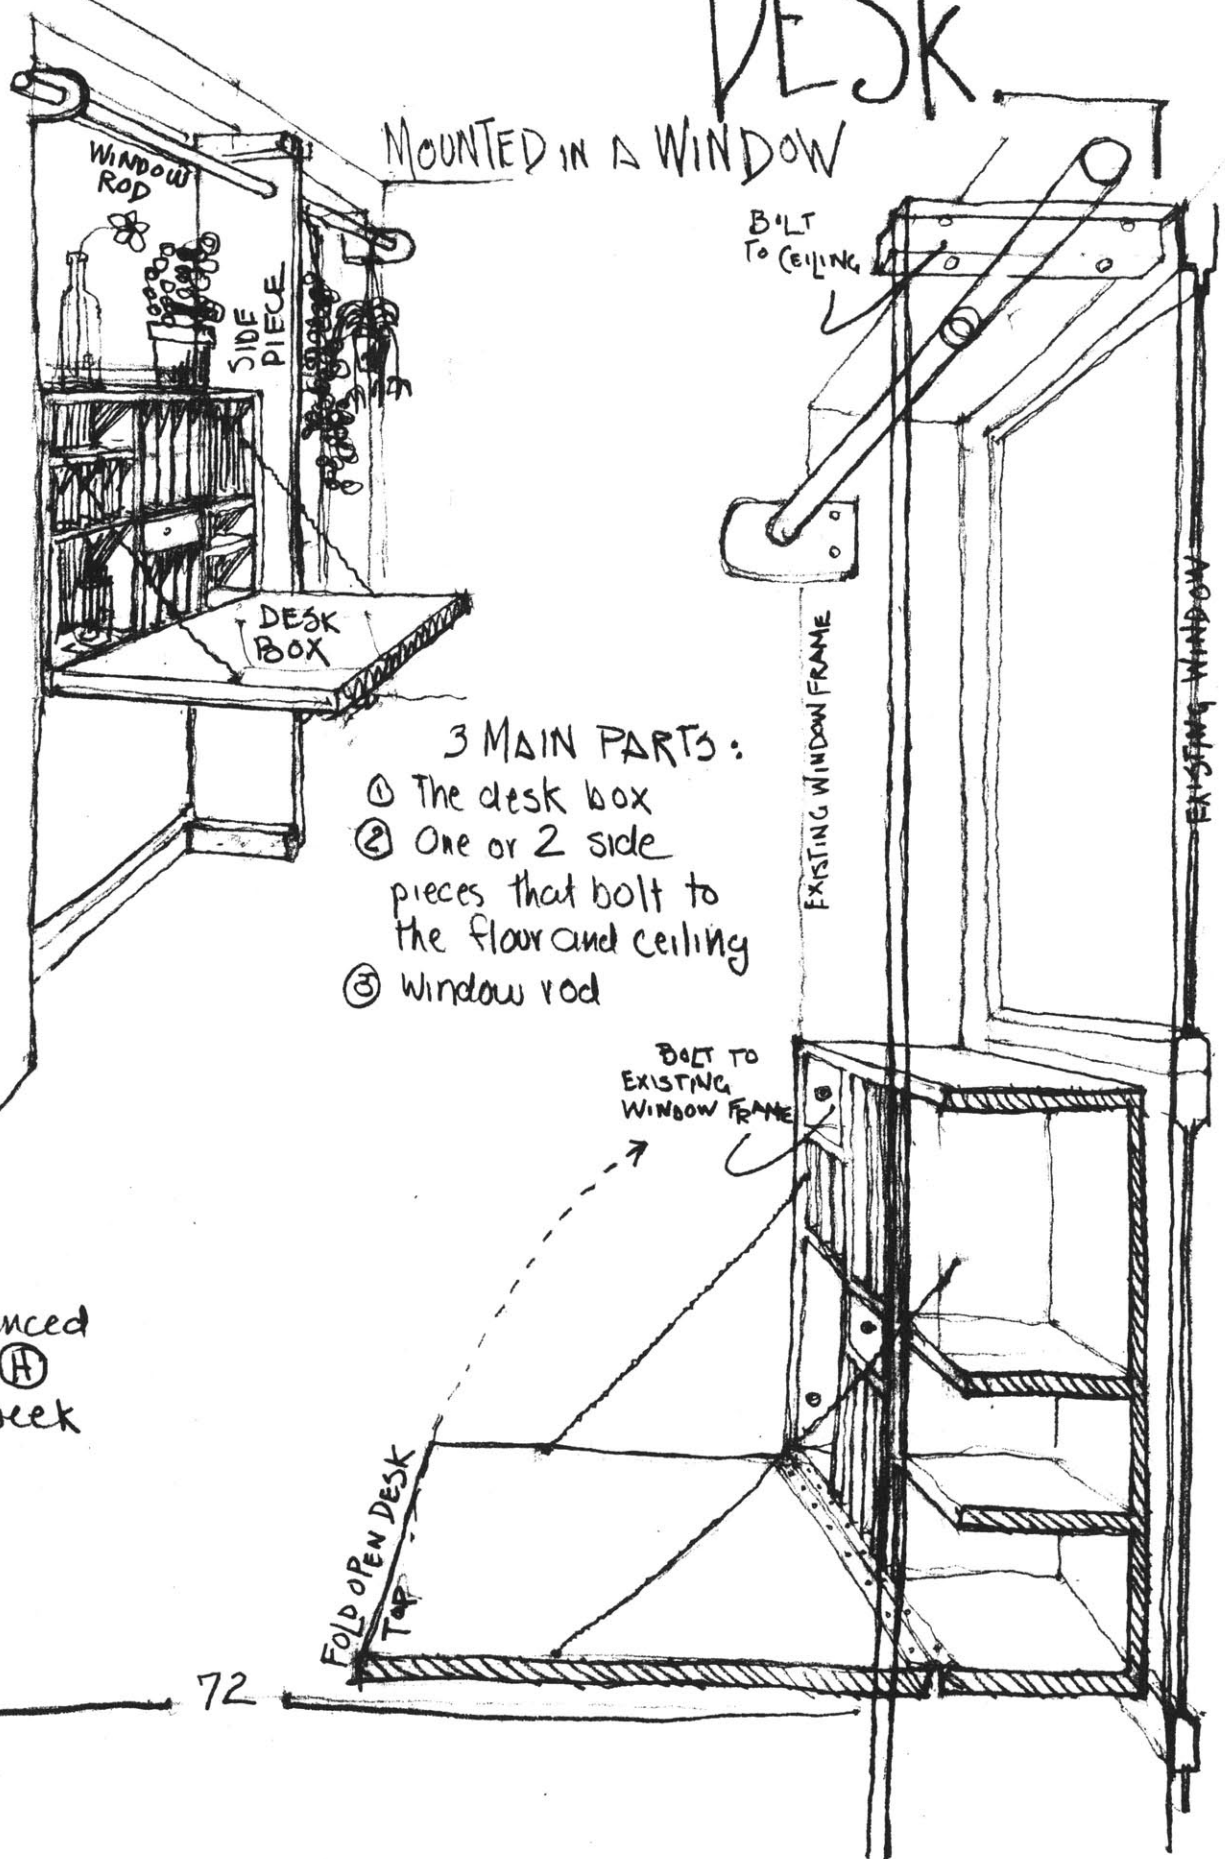 DESK
MOUNTED IN A WINDOW
WINDOW
ROD
SIDE
PIECE
DESK
BOX
BOLT
TO CEILING
EXISTING WINDOW FRAME
EXISTING WINDOW
3 MAIN PARTS:
① The desk box
② One or 2 side
pieces that bolt to
the floor and ceiling
③ Window rod
BOLT TO
EXISTING
WINDOW FRAME
FOLD OPEN DESK
TOP
72